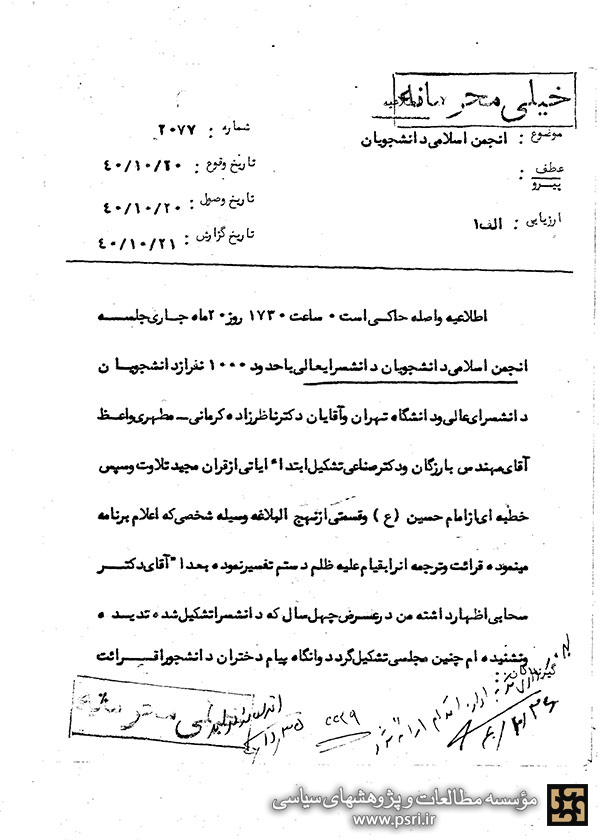 خیلی محرمانه
اطلاعیه
شماره : ۲۰۷۷
موضوع : انجمن اسلامی دانشجویان
تاریخ وقوع : ۴۰/۱۰/۲۰
عطف
پیرو :
تاریخ وصول : ۴۰/۱۰/۲۰
ارزیابی : الف۱
تاریخ گزارش : ۴۰/۱۰/۲۱
اطلاعیه واصله حاکی است ۰ ساعت ۱۷۳۰ روز ۲۰ماه جاری جلسه
انجمن اسلامی دانشجویان دانشسرایعالی باحدود ۱۰۰۰ نفرازدانشجویان
دانشسرای عالی ودانشگاه تهران وآقایان دکترناظرزاده کرمانی ـ مطهری واعظ
آقای مهندس بازرگان ودکترصناعی تشکیل ابتداء ایاتی ازقران مجید تلاوت وسپس
خطبه ای ازامام حسین (ع) وقسمتی ازنهج البلاغه وسیله شخصی که اعلام برنامه
مینموده قرائت وترجمه انرابقیام علیه ظلم دستم تفسیرنموده بعدا" آقای دکتر
سحابی اظهارداشته من درعرض چهل سال که دانشسراتشکیل شده ندیده
ونشنیده ام چنین مجلسی تشکیل گردد وانگاه پیام دختران دانشجوراقرائت
خیلی محرمانه
مؤسسه مطالعات و پژوهشهای سیاسی
www.psri.ir